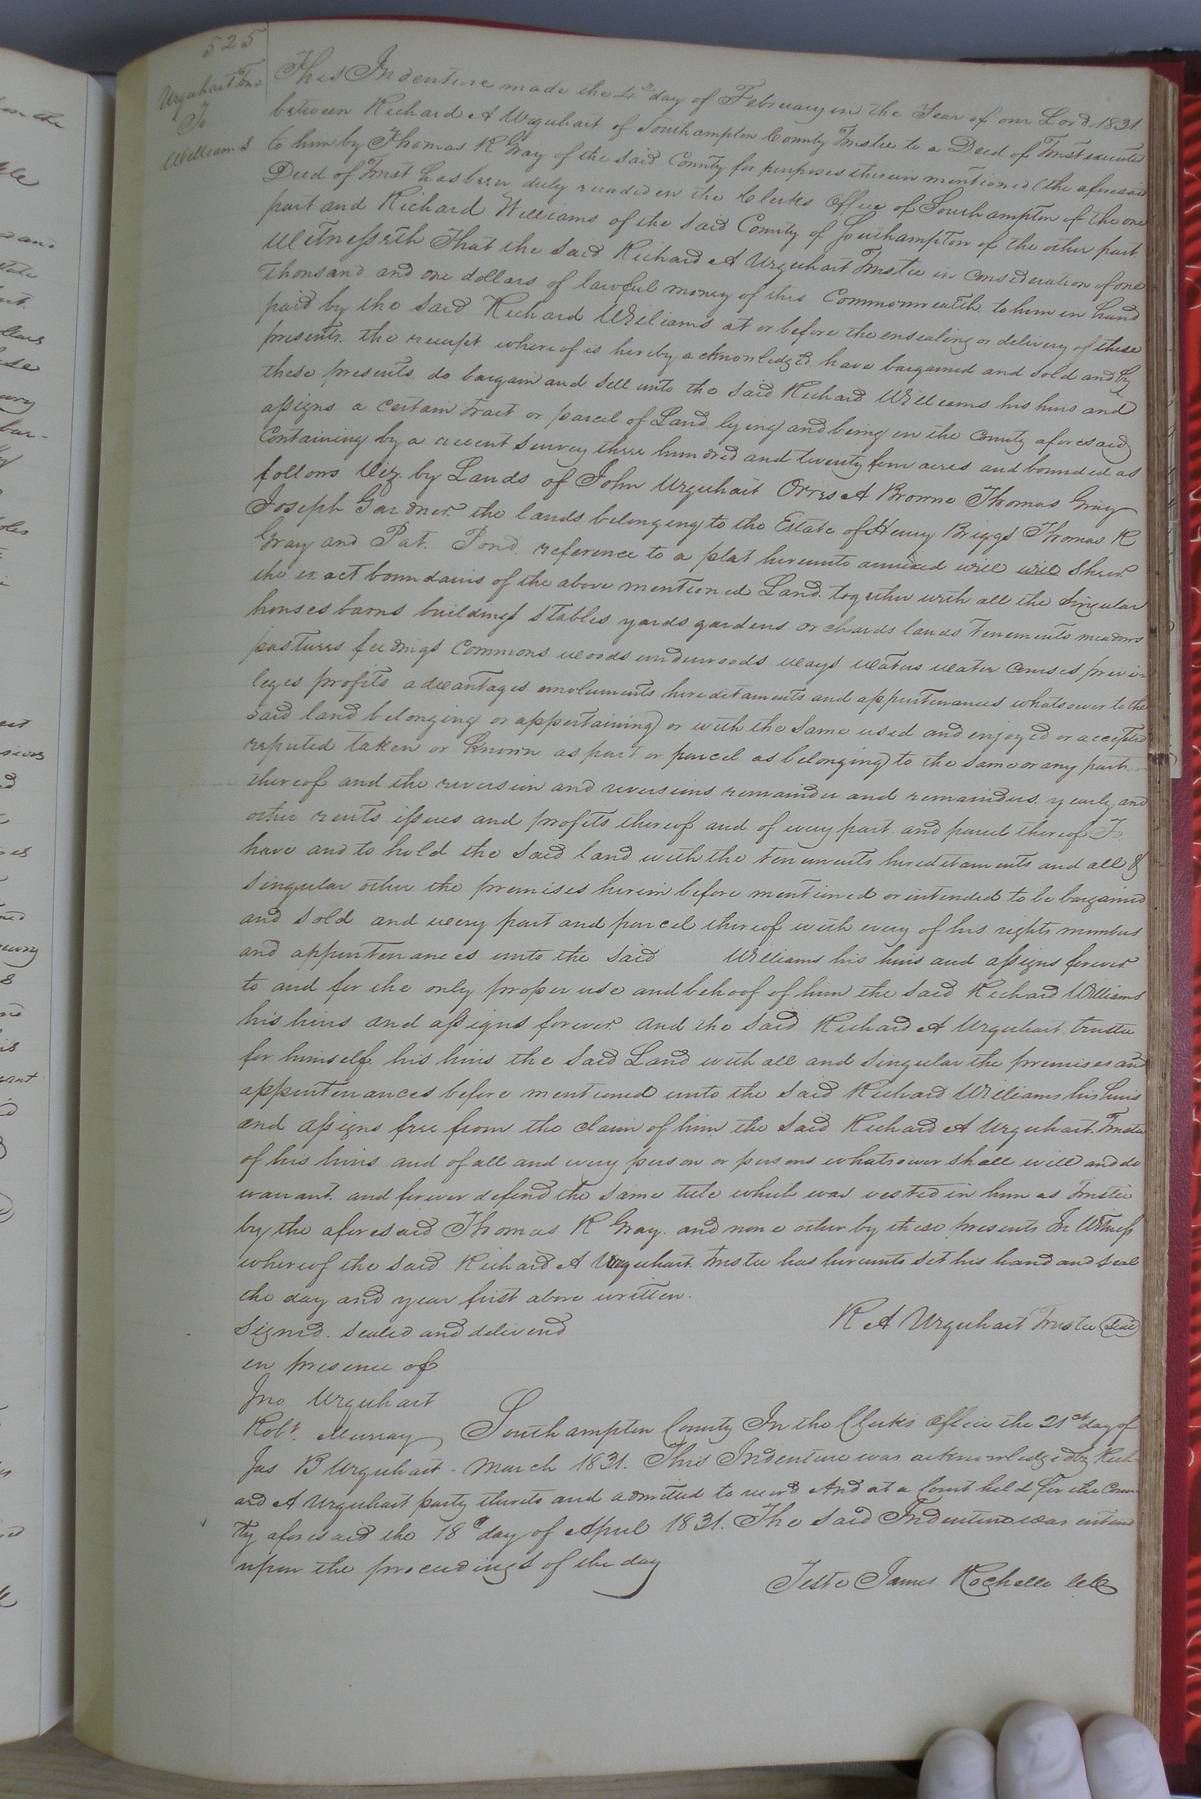 525
Urquhart Trus
To
Williams
This Indenture made the 4th day of February in the Year of our Lord 1831
between Richard A Urquhart of Southampton County Trustee to a Deed of Trust executed
to him by Thomas R Gray of the said County for purposes therein mentioned (the aforesaid
Deed of Trust has been duly recorded in the Clerks Office of Southampton of the one
part and Richard Williams of the said County of Southampton of the other part
Witnesseth That the said Richard A Urquhart Trustee in consideration of one
thousand and one dollars of lawful money of this Commonwealth to him in hand
paid by the said Richard Williams at or before the ensealing or delivery of these
presents the receipt whereof is hereby acknowledged have bargained and sold and by
these presents do bargain and sell unto the said Richard Williams his heirs and
assigns a certain tract or parcel of Land lying and being in the County aforesaid
Containing by a recent survey three hundred and twenty four acres and bounded as
follows Viz by Lands of John Urquhart Orris A Browne Thomas Gray
Joseph Gardner the lands belonging to the Estate of Henry Briggs Thomas R
Gray and Pat. Pond reference to a plat hereunto annexed will will shew
the exact boundaries of the above mentioned Land together with all the singular
houses barns buildings stables yards gardens orchards lands tenements meadows
pastures feedings commons woods underwoods ways waters water courses previ
leges profits advantages emoluments hereditaments and appurtenances whatsoever to the
said land belonging or appertaining or with the same used and enjoyed or accepted
reputed taken or known as part or parcel as belonging to the same or any part
thereof and the reversion and reversions remainder and remainders yearly and
other rents issues and profits thereof and of every part and parcel thereof To
have and to hold the said land with the tenements hereditaments and all &
singular other the premises herein before mentioned or intended to be bargained
and sold and every part and parcel thereof with every of his rights members
and appurtenances unto the said Williams his heirs and assigns forever
to and for the only proper use and behoof of him the said Richard Williams
his heirs and assigns forever and the said Richard A Urquhart trustee
for himself his heirs the said Land with all and singular the premises and
appurtenances before mentioned unto the said Richard Williams his heirs
and assigns free from the claim of him the said Richard A Urquhart Trustee
of his heirs and of all and every person or persons whatsoever shall will and do
warrant and forever defend the same title which was vested in him as Trustee
by the aforesaid Thomas R Gray and none other by these presents In Witness
whereof the said Richard A Urquhart Trustee has hereunto set his hand and seal
the day and year first above written.
Signed sealed and delivered
R A Urquhart Trustee Seal
in presence of
Jno Urquhart
Robt. Murray Southampton County In the Clerks Office the 21st day of
Jas B Urquhart March 1831. This Indenture was acknowledged by Rich
ard A Urquhart party thereto and admitted to record And at a Court held for the Coun
ty aforesaid the 18th day of April 1831. The said Indenture was entered
upon the proceedings of the day
Teste James Rochelle Clk